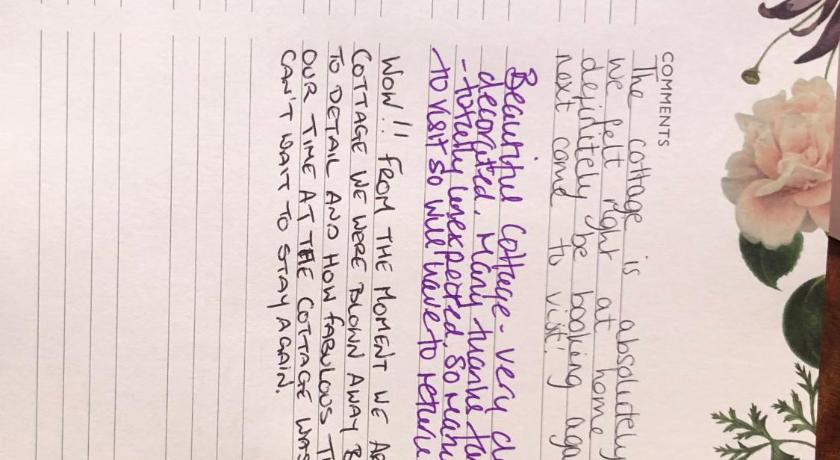 COMMENTS
The cottage is absolutely
we felt right at home
definitely be booking aga
next come to visit!
Beautiful Cottage - very
decorated. Many thanks
- totally unexpected. So many
- to visit so will have to return
WOW!! FROM THE MOMENT WE
COTTAGE WE WERE BLOWN AWAY B
TO DETAIL AND HOW FABULOUS
OUR TIME AT THE COTTAGE WAS
CAN'T WAIT TO STAY AGAIN.